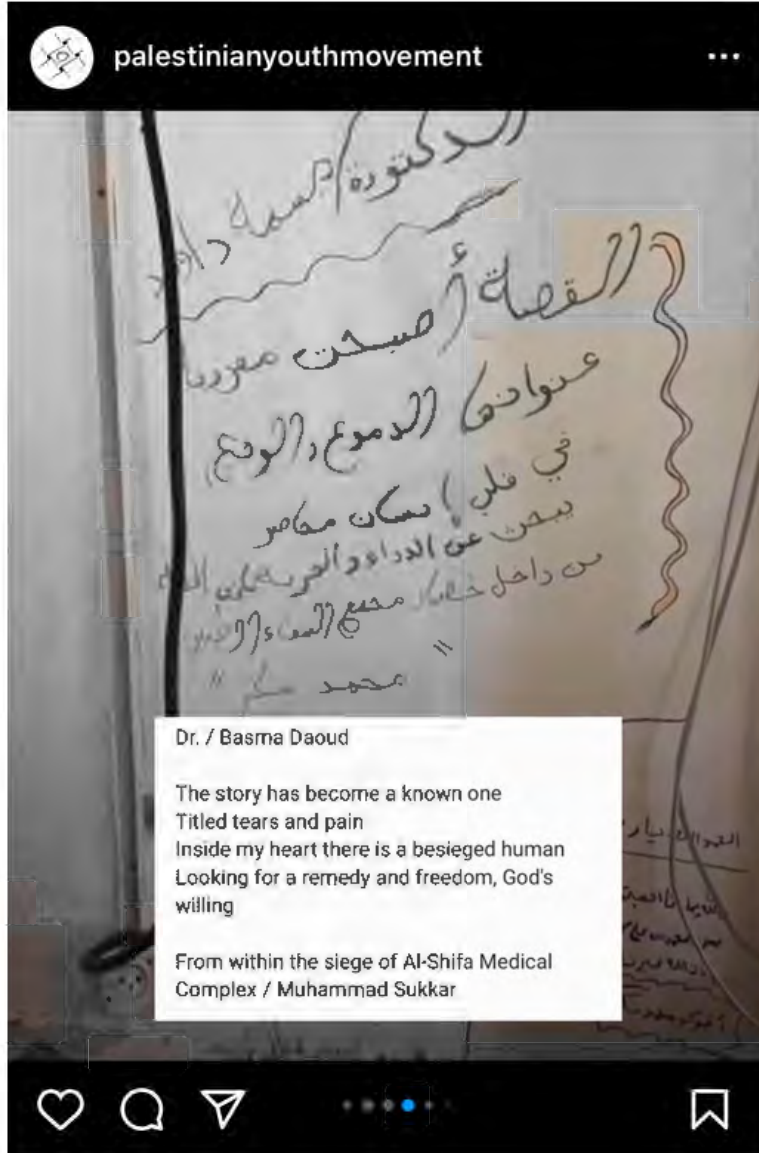 palestinianyouthmovement
الدكتورة / بسمة داود
القصة أصبحت معروفة
عنوانها الدموع والوجع
في قلب إنسان محاصر
يبحث عن الدواء والحرية
من داخل حصار مجمع الشفاء
" محمد سكر "
Dr. / Basma Daoud
The story has become a known one
Titled tears and pain
Inside my heart there is a besieged human
Looking for a remedy and freedom, God's
willing
From within the siege of Al-Shifa Medical
Complex / Muhammad Sukkar